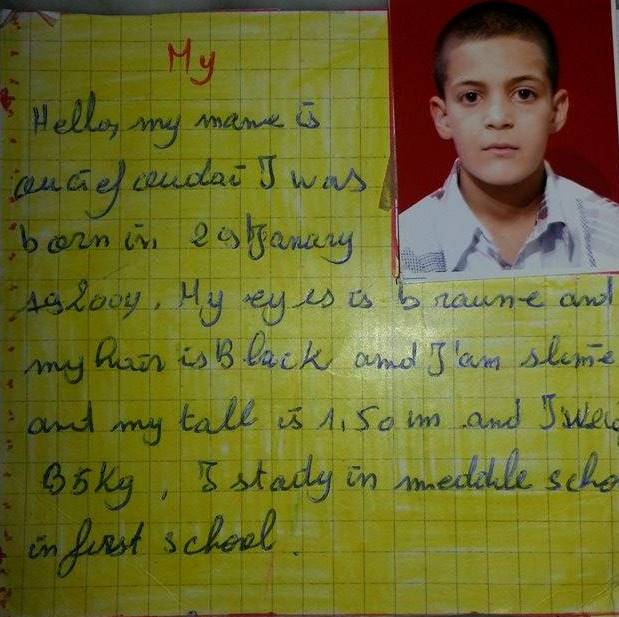 My
Hello, my mame is
I was
born in Janary
2009. My eyes is braune and
my hair is Black amd I'am slime
and my tall is 1,50 m and I
35Kg, I study in meddle
in first school.